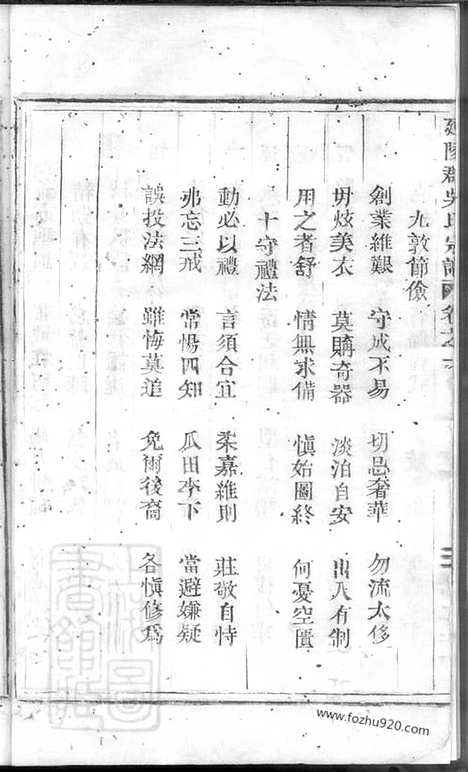 延陵郡吳氏宗譜 卷之六
九敦節儉
創業維艱 守成不易 切忌奢華 勿流太侈
毋炫美衣 莫購奇器 淡泊自安 出入有制
用之者舒 情無求備 愼始圖終 何憂空匱
十守禮法
動必以禮 言須合宜 柔嘉維則 莊敬自恃
弗忘三戒 常惕四知 瓜田李下 當避嫌疑
誤投法網 雖悔莫追 免爾後裔 各愼修爲
上海圖書館藏
www.fozhu920.com